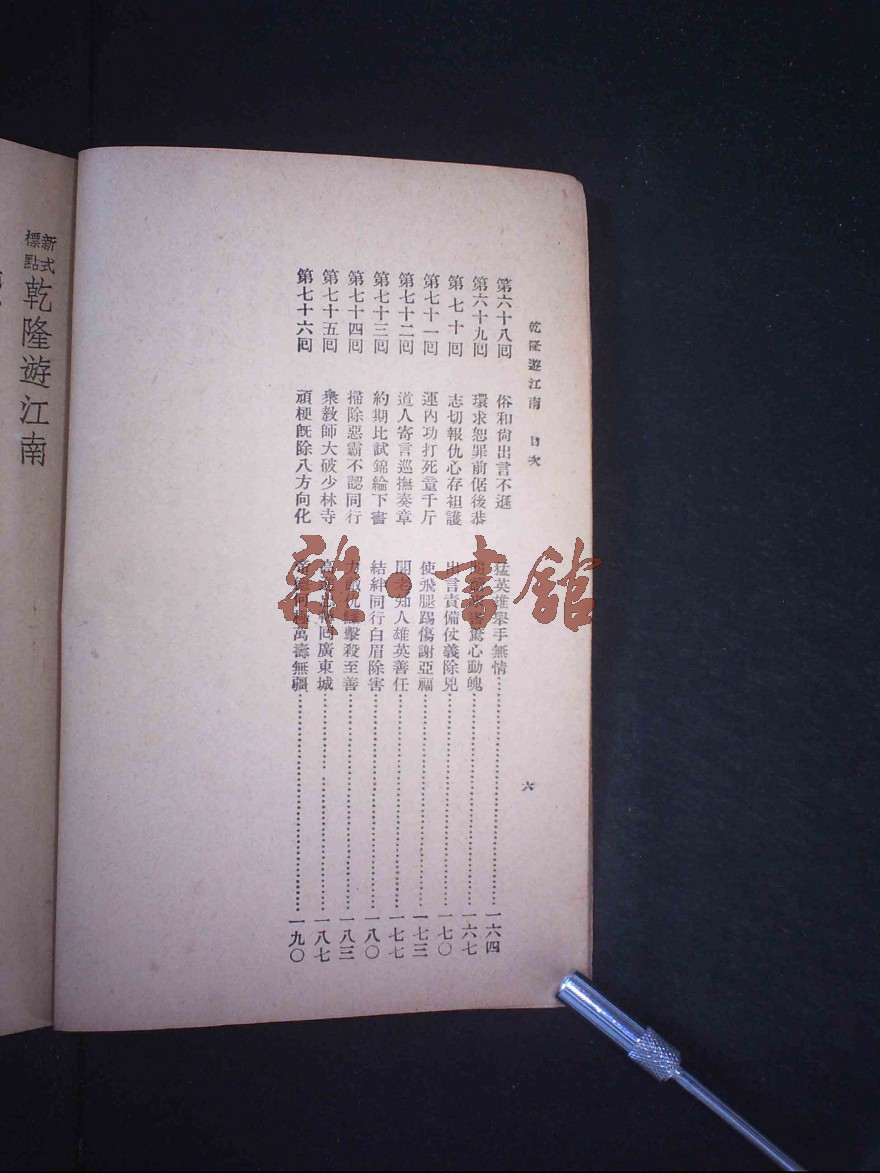 乾隆遊江南 目次 六
第六十八囘 俗和尙出言不遜 猛英雄舉手無情 一六四
第六十九囘 環求恕罪前倨後恭 驚心動魄 一六七
第七十囘 志切報仇心存袒護 出言責備仗義除兇 一七〇
第七十一囘 運內功打死童千斤 使飛腿踢傷謝亞福 一七三
第七十二囘 道人寄言巡撫奏章 閣老知人雄英善任 一七七
第七十三囘 約期比試錦綸下書 結絆同行白眉除害 一八〇
第七十四囘 掃除惡霸不認同行 擊殺至善 一八三
第七十五囘 衆敎師大破少林寺 囘廣東城 一八七
第七十六囘 頑梗旣除八方向化 萬壽無疆 一九〇
新式標點 乾隆遊江南
雜·書館